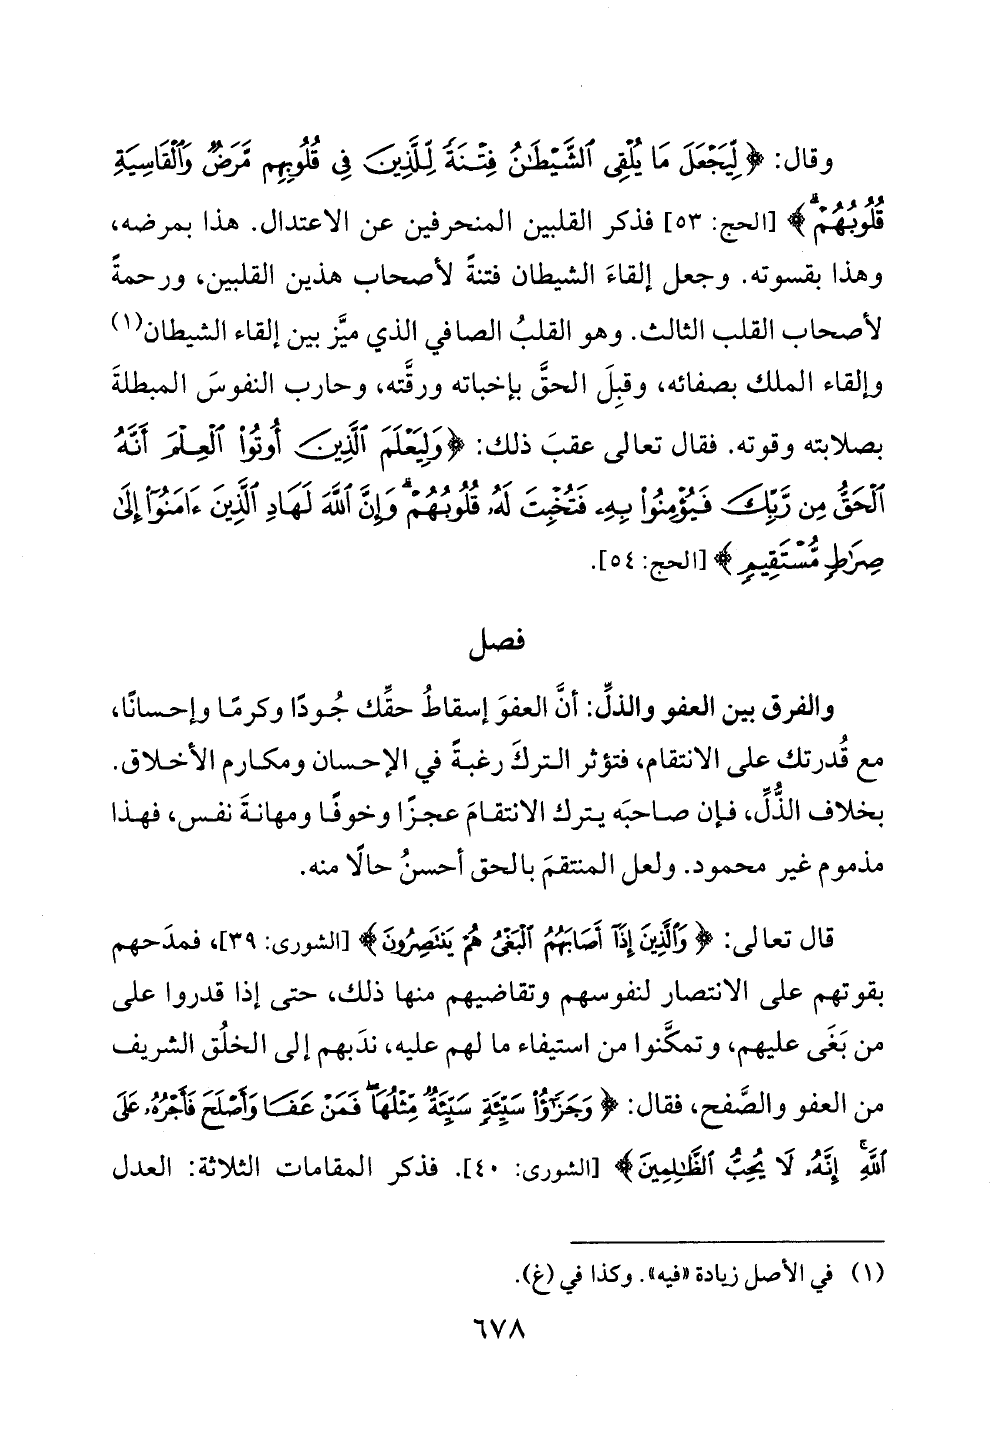 وقال: ﴿لِّيَجْعَلَ مَا يُلْقِى ٱلشَّيْطَٰنُ فِتْنَةً لِّلَّذِينَ فِى قُلُوبِهِم مَّرَضٌ وَٱلْقَاسِيَةِ
قُلُوبُهُمْ﴾ [الحج: ٥٣] فذكر القلبين المنحرفين عن الاعتدال. هذا بمرضه،
وهذا بقسوته. وجعل إلقاءَ الشيطان فتنةً لأصحاب هذين القلبين، ورحمةً
لأصحاب القلب الثالث. وهو القلبُ الصافي الذي ميَّز بين إلقاء الشيطان(١)
وإلقاء الملك بصفائه، وقبِلَ الحقَّ بإخباته ورقَّته، وحارب النفوسَ المبطلةَ
بصلابته وقوته. فقال تعالى عقبَ ذلك: ﴿وَلِيَعْلَمَ ٱلَّذِينَ أُوتُوا۟ ٱلْعِلْمَ أَنَّهُ
ٱلْحَقُّ مِن رَّبِّكَ فَيُؤْمِنُوا۟ بِهِۦ فَتُخْبِتَ لَهُۥ قُلُوبُهُمْ ۗ وَإِنَّ ٱللَّهَ لَهَادِ ٱلَّذِينَ ءَامَنُوٓا۟ إِلَىٰ
صِرَٰطٍ مُّسْتَقِيمٍ﴾ [الحج: ٥٤].
فصل
والفرق بين العفو والذلِّ: أنَّ العفوَ إسقاطُ حقِّك جُودًا وكرمًا وإحسانًا،
مع قُدرتك على الانتقام، فتؤثر التركَ رغبةً في الإحسان ومكارم الأخلاق.
بخلاف الذُّلِّ، فإن صاحبَه يترك الانتقامَ عجزًا وخوفًا ومهانةَ نفس، فهذا
مذموم غير محمود. ولعل المنتقمَ بالحق أحسنُ حالًا منه.
قال تعالى: ﴿وَٱلَّذِينَ إِذَآ أَصَابَهُمُ ٱلْبَغْىُ هُمْ يَنتَصِرُونَ﴾ [الشورى: ٣٩]، فمدَحهم
بقوتهم على الانتصار لنفوسهم وتقاضيهم منها ذلك، حتى إذا قدروا على
من بَغَى عليهم، وتمكَّنوا من استيفاء ما لهم عليه، ندَبهم إلى الخلُق الشريف
من العفو والصَّفح، فقال: ﴿وَجَزَٰٓؤُا۟ سَيِّئَةٍ سَيِّئَةٌ مِّثْلُهَا ۖ فَمَنْ عَفَا وَأَصْلَحَ فَأَجْرُهُۥ عَلَى
ٱللَّهِ ۚ إِنَّهُۥ لَا يُحِبُّ ٱلظَّٰلِمِينَ﴾ [الشورى: ٤٠]. فذكر المقامات الثلاثة: العدل
(١) في الأصل زيادة «فيه». وكذا في (غ).
٦٧٨